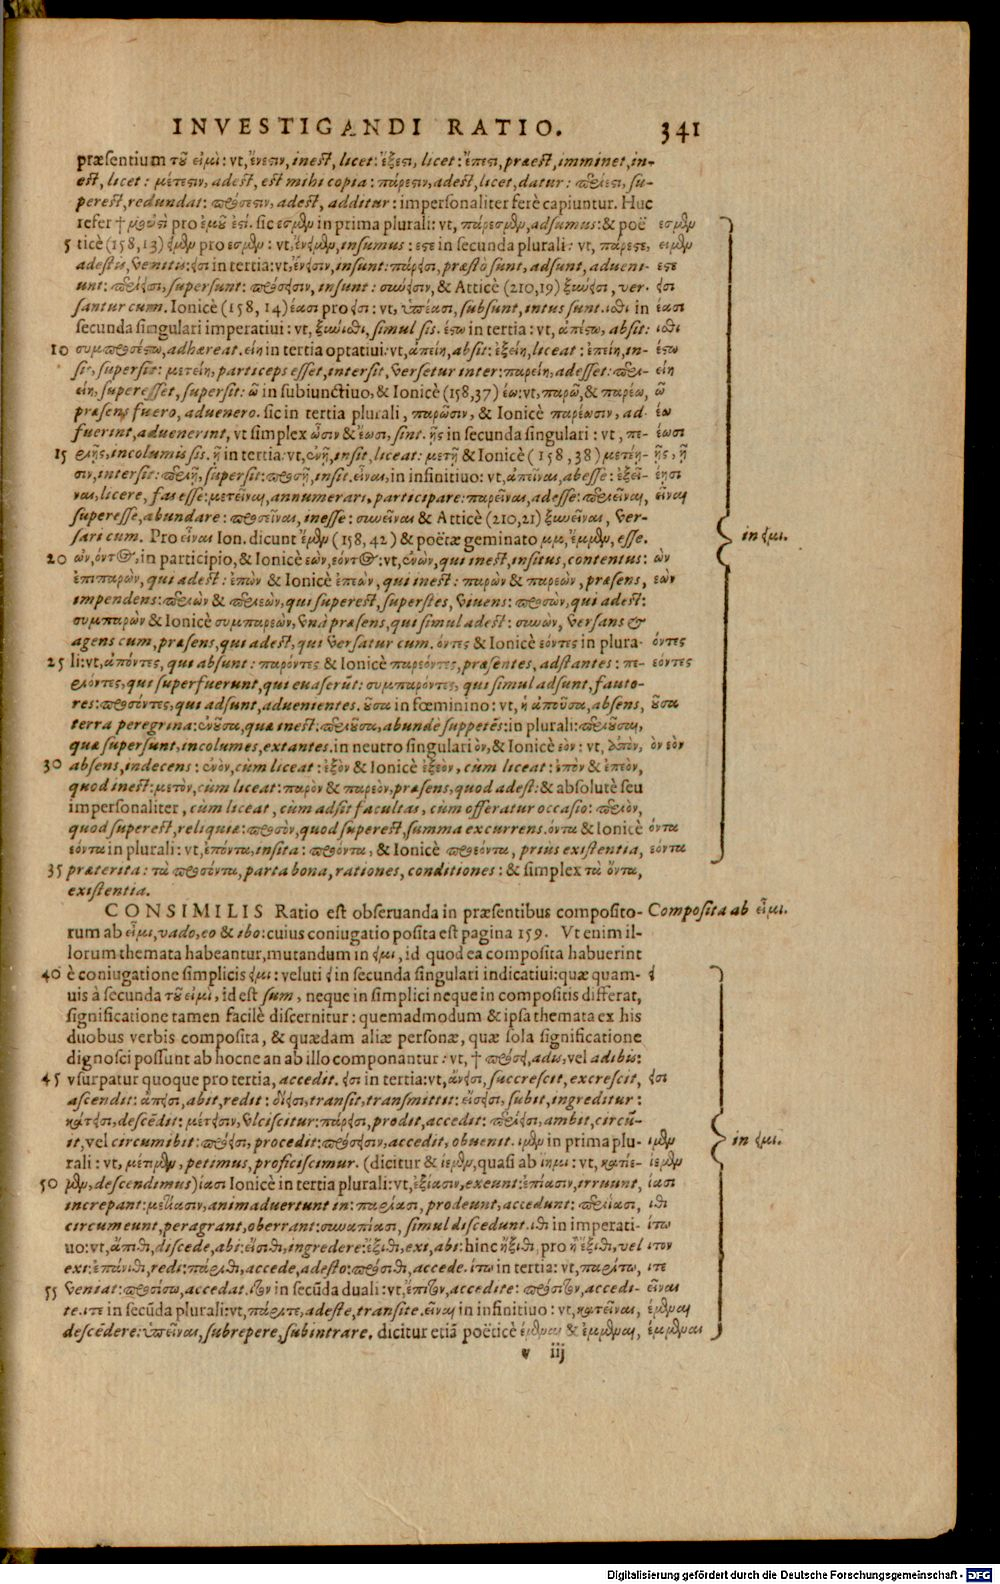 INVESTIGANDI RATIO. 341
præsentium τοῦ εἰμὶ: vt, ἔνεστιν, inest, licet: ἔξεστι, licet: ἔπεστι, præest, imminet, in-
est, licet: μέτεστιν, adest, est mihi copia: πάρεστιν, adest, licet, datur: περίεστι, su-
perest, redundat: πρόσεστιν, adest, additur: impersonaliter ferè capiuntur. Huc
refer † pro ἐμοῦ ἐστί. sic ἐσμὲν in prima plurali: vt, πάρεσμεν, adsumus: & poë ἐσμὲν
5 ticè (158,13) εἰμὲν pro ἐσμὲν: vt, ἔνειμεν, insumus: ἐστὲ in secunda plurali: vt, πάρεστε, εἰμὲν
adestis, venitis: εἰσι in tertia: vt, ἔνεισιν, insunt: πάρεισι, præstò sunt, adsunt, adueni- ἐστὲ
unt: περίεισι, supersunt: πρόσεισιν, insunt: σύνεισιν, & Atticè (210,19) ξύνεισι, ver- εἰσι
santur cum. Ionicè (158, 14) ἔασι pro εἰσι: vt, ὑπέασι, subsunt, intus sunt. ἴσθι in ἔασι
secunda singulari imperatiui: vt, ξύνισθι, simul sis. ἔστω in tertia: vt, ἀπέστω, absit: ἴσθι
10 συμπροσέστω, adhæreat. εἴη in tertia optatiui: vt, ἀπείη, absit: ἐξείη, liceat: ἐπείη, in- ἔστω
sit, supersit: μετείη, particeps esset, intersit, versetur inter: παρείη, adesset: περι- εἴη
είη, superesset, supersit: ὦ in subiunctiuo, & Ionicè (158,37) ἔω: vt, παρῶ, & παρέω, ὦ
præsens fuero, aduenero. sic in tertia plurali, παρῶσιν, & Ionicè παρέωσιν, ad- ἔω
fuerint, aduenerint, vt simplex ὦσιν & ἔωσι, sint. ᾖς in secunda singulari: vt, πε- ἔωσι
15 ριῇς, incolumis sis. ᾖ in tertia: vt, ἐνῇ, insit, liceat: μετῇ & Ionicè (158,38) μετέῃ- ᾖς, ᾖ
σιν, intersit: περιῇ, supersit: προσῇ, insit. εἶναι, in infinitiuo: vt, ἀπεῖναι, abesse: ἐξεῖ- ἔῃσι
ναι, licere, fas esse: μετεῖναι, annumerari, participare: παρεῖναι, adesse: περιεῖναι, εἶναι
superesse, abundare: προσεῖναι, inesse: συνεῖναι & Atticè (210,21) ξυνεῖναι, ver-
sari cum. Pro εἶναι Ion. dicunt ἔμεν (158,42) & poëtæ geminato μμ, ἔμμεν, esse. in εἰμι.
20 ὢν, ὄντος, in participio, & Ionicè ἐὼν, ἐόντος: vt, ἐνὼν, qui inest, insitus, contentus: ὢν
ἐπιπαρὼν, qui adest: ἐπὼν & Ionicè ἐπεὼν, qui inest: παρὼν & παρεὼν, præsens, ἐὼν
impendens: περιὼν & περιεὼν, qui superest, superstes, viuens: προσὼν, qui adest:
συμπαρὼν & Ionicè συμπαρεὼν, vnà præsens, qui simul adest: συνὼν, versans &
agens cum, præsens, qui adest, qui versatur cum. ὄντες & Ionicè ἐόντες in plura- ὄντες
25 li: vt, ἀπόντες, qui absunt: παρόντες & Ionicè παρεόντες, præsentes, adstantes: πε- ἐόντες
ριόντες, qui superfuerunt, qui euaserūt: συμπαρόντες, qui simul adsunt, fauto-
res: προσόντες, qui adsunt, aduenientes. οὖσα in fœminino: vt, ἡ ἀποῦσα, absens, οὖσα
terra peregrina: ἐνοῦσα, quæ inest: περιοῦσα, abundè suppetēs: in plurali: περιοῦσαι,
quæ supersunt, incolumes, extantes. in neutro singulari ὂν, & Ionicè ἐὸν: vt, ἀπὸν, ὂν ἐὸν
30 absens, indecens: ἐνὸν, cùm liceat: ἐξὸν & Ionicè ἐξεὸν, cùm liceat: ἐπὸν & ἐπεὸν,
quod inest: μετὸν, cùm liceat: παρὸν & παρεὸν, præsens, quod adest: & absolutè seu
impersonaliter, cùm liceat, cùm adsit facultas, cùm offeratur occasio: περιὸν,
quod superest, reliquiæ: προσὸν, quod superest, summa excurrens. ὄντα & Ionicè ὄντα
ἐόντα in plurali: vt, ἐπόντα, insita: προόντα, & Ionicè προεόντα, priùs existentia, ἐόντα
35 præterita: τὰ προσόντα, parta bona, rationes, conditiones: & simplex τὰ ὄντα,
existentia.
CONSIMILIS Ratio est obseruanda in præsentibus composito- Composita ab εἶμι.
rum ab εἶμι, vado, eo & ibo: cuius coniugatio posita est pagina 159. Vt enim il-
lorum themata habeantur, mutandum in ειμι, id quod ea composita habuerint
40 è coniugatione simplicis εἰμι: veluti εἰ in secunda singulari indicatiui: quæ quam- εἰ
uis à secunda τοῦ εἰμὶ, id est sum, neque in simplici neque in compositis differat,
significatione tamen facilè discernitur: quemadmodum & ipsa themata ex his
duobus verbis composita, & quædam aliæ personæ, quæ sola significatione
dignosci possunt ab hocne an ab illo componantur: vt, † πρόσει, adis, vel adibis:
45 vsurpatur quoque pro tertia, accedit. εἰσι in tertia: vt, ἄνεισι, succrescit, excrescit, εἰσι
ascendit: ἄπεισι, abit, redit: δίεισι, transit, transmittit: εἴσεισι, subit, ingreditur:
κάτεισι, descēdit: μέτεισιν, vlciscitur: πάρεισι, prodit, accedit: περίεισι, ambit, circū-
it, vel circumibit: πρόεισι, procedit: πρόσεισιν, accedit, obuenit. ιμεν in prima plu- ιμεν in εἰμι.
rali: vt, μέτιμεν, petimus, proficiscimur. (dicitur & ἵεμεν, quasi ab ἵημι: vt, κατίε- ιεμεν
50 μεν, descendimus) ίασι Ionicè in tertia plurali: vt, ἐξίασιν, exeunt: ἐπίασιν, irruunt, ιασι
increpant: μετίασιν, animaduertunt in: παρίασι, prodeunt, accedunt: περιίασι, ιθι
circumeunt, peragrant, oberrant: συναπίασι, simul discedunt. ιθι in imperati- ιτω
uo: vt, ἄπιθι, discede, abi: εἴσιθι, ingredere: ἔξιθι, exi, abi: hinc ἤξιθι, pro ἢ ἔξιθι, vel ιτον
exi: ἐπάνιθι, redi: πάριθι, accede, adesto: πρόσιθι, accede. ιτω in tertia: vt, παρίτω, ιτε
55 veniat: προσίτω, accedat. ιτον in secūda duali: vt, ἔπιτον, accedite: πρόσιτον, accedi- εἶναι
te. ιτε in secūda plurali: vt, πάριτε, adeste, transite. εἶναι in infinitiuo: vt, κατεῖναι, ἔμεναι
descēdere: ὑπεῖναι, subrepere, subintrare. dicitur etiā poëticè ἔμεναι & ἔμμεναι, ἔμμεναι
v iij
Digitalisierung gefördert durch die Deutsche Forschungsgemeinschaft - DFG